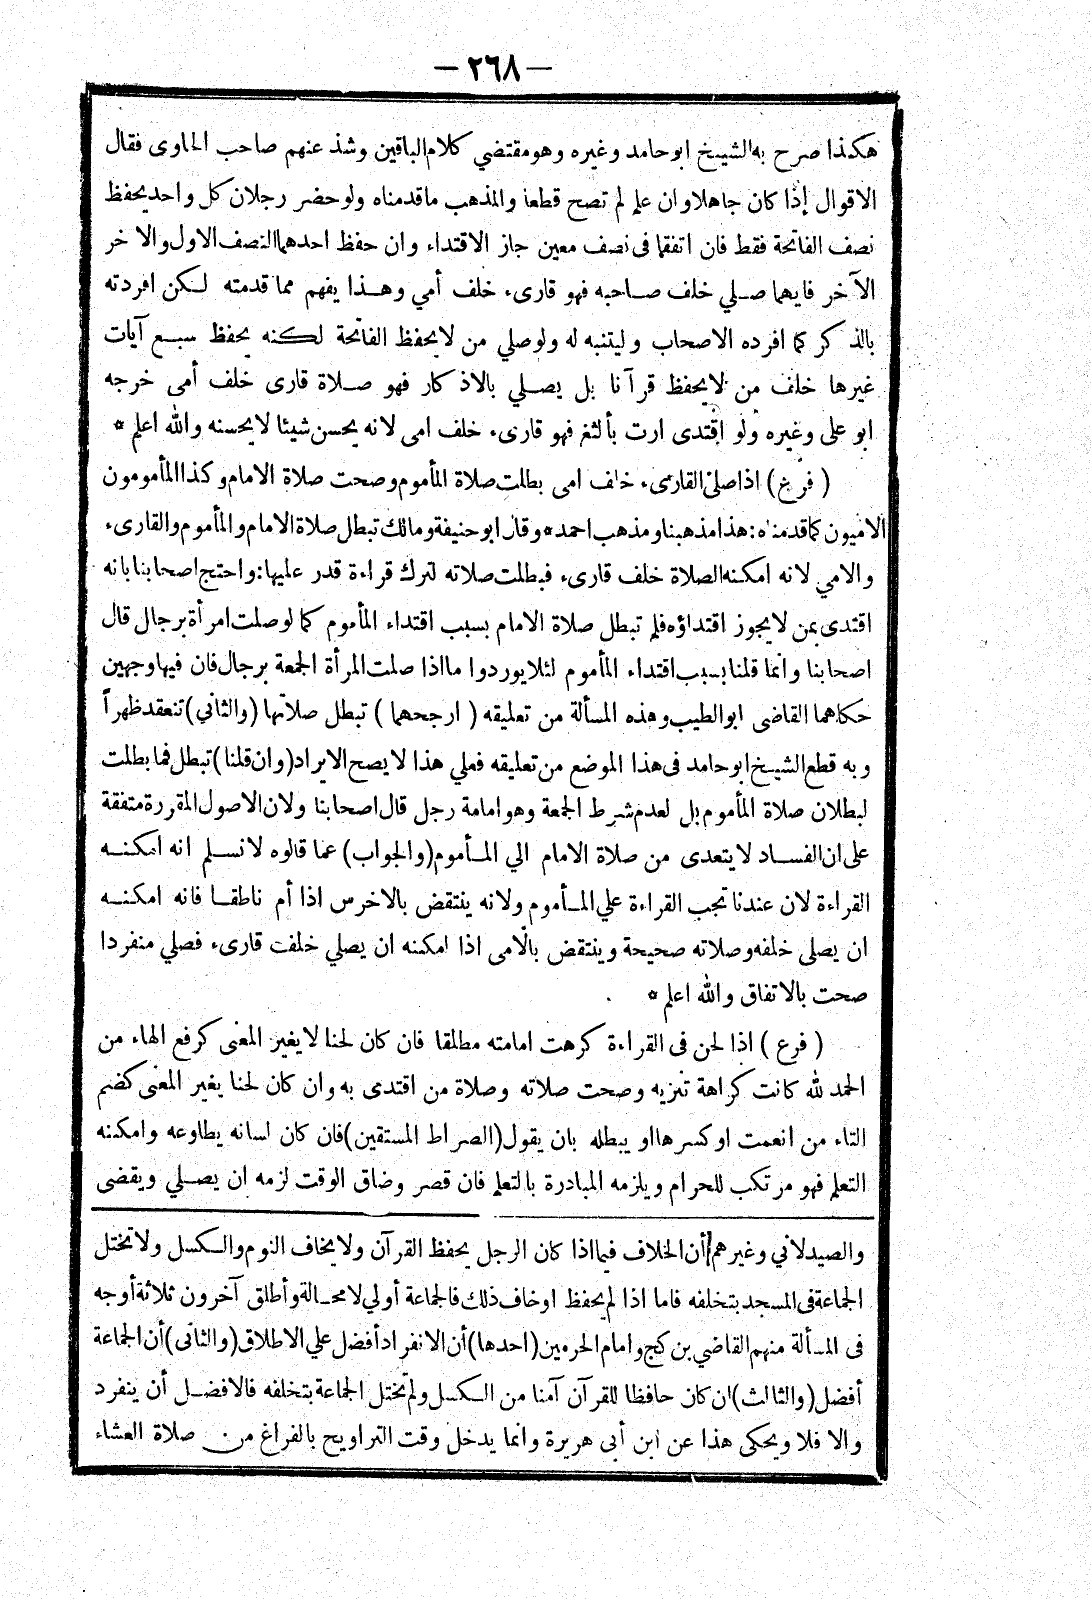 — ٢٦٨ —
هكذا صرح به الشيخ ابو حامد وغيره وهو مقتضي كلام الباقين وشذ عنهم صاحب الحاوى فقال
الاقوال إذا كان جاهلا وان علم لم تصح قطعا والمذهب ما قدمناه ولو حضر رجلان كل واحد يحفظ
نصف الفاتحة فقط فان اتفقا فى نصف معين جاز الاقتداء وان حفظ احدهما النصف الاول والاخر
الآخر فايهما صلي خلف صاحبه فهو قارىء خلف أمي وهذا يفهم مما قدمته لكن افردته
بالذكر كما افرده الاصحاب وليتنبه له ولو صلي من لا يحفظ الفاتحة لكنه يحفظ سبع آيات
غيرها خلف من لا يحفظ قرآنا بل يصلي بالاذكار فهو صلاة قارى خلف أمى خرجه
ابو على وغيره ولو اقتدى ارت بألثغ فهو قارىء خلف امى لانه يحسن شيئا لا يحسنه والله اعلم *
( فرع ) اذا صلى القارىء خلف امى بطلت صلاة المأموم وصحت صلاة الامام وكذا المأمومون
الاميون كما قدمناه : هذا مذهبنا ومذهب احمد * وقال ابو حنيفة ومالك تبطل صلاة الامام والمأموم والقارىء
والامي لانه امكنه الصلاة خلف قارىء فبطلت صلاته لترك قراءة قدر عليها : واحتج اصحابنا بانه
اقتدى بمن لا يجوز اقتداؤه فلم تبطل صلاة الامام بسبب اقتداء المأموم كما لو صلت امرأة برجال قال
اصحابنا وانما قلنا بسبب اقتداء المأموم لئلا يوردوا ما اذا صلت المرأة الجمعة برجال فان فيها وجهين
حكاهما القاضى ابو الطيب وهذه المسألة من تعليقه ( ارجحهما ) تبطل صلاتها (والثاني) تنعقد ظهرا
وبه قطع الشيخ ابو حامد فى هذا الموضع من تعليقه فعلي هذا لا يصح الايراد (وان قلنا) تبطل فما بطلت
لبطلان صلاة المأموم بل لعدم شرط الجمعة وهو امامة رجل قال اصحابنا ولان الاصول المقررة متفقة
على ان الفساد لا يتعدى من صلاة الامام الي المأموم (والجواب) عما قالوه لا نسلم انه امكنه
القراءة لان عندنا تجب القراءة علي المأموم ولانه ينتقض بالاخرس اذا أم ناطقا فانه امكنه
ان يصلى خلفه وصلاته صحيحة وينتقض بالامى اذا امكنه ان يصلي خلفت قارىء فصلي منفردا
صحت بالاتفاق والله اعلم *
( فرع ) اذا لحن فى القراءة كرهت امامته مطلقا فان كان لحنا لا يغير المعنى كرفع الهاء من
الحمد لله كانت كراهة تنزيه وصحت صلاته وصلاة من اقتدى به وان كان لحنا يغير المعنى كضم
التاء من انعمت او كسرها او يبطله بان يقول (الصراط المستقين) فان كان لسانه يطاوعه وامكنه
التعلم فهو مرتكب للحرام ويلزمه المبادرة بالتعلم فان قصر وضاق الوقت لزمه ان يصلي ويقضى
والصيدلاني وغيرهم أن الخلاف فيما اذا كان الرجل يحفظ القرآن ولا يخاف النوم والكسل ولا تختل
الجماعة فى المسجد بتخلفه فاما اذا لم يحفظ او خاف ذلك فالجماعة أولي لا محالة وأطلق آخرون ثلاثة أوجه
فى المسألة منهم القاضي بن كج وامام الحرمين (احدها) أن الانفراد أفضل علي الاطلاق (والثانى) أن الجماعة
أفضل (والثالث) ان كان حافظا للقرآن آمنا من الكسل ولم تختل الجماعة بتخلفه فالافضل أن ينفرد
والا فلا ويحكى هذا عن ابن أبى هريرة وانما يدخل وقت التراويح بالفراغ من صلاة العشاء